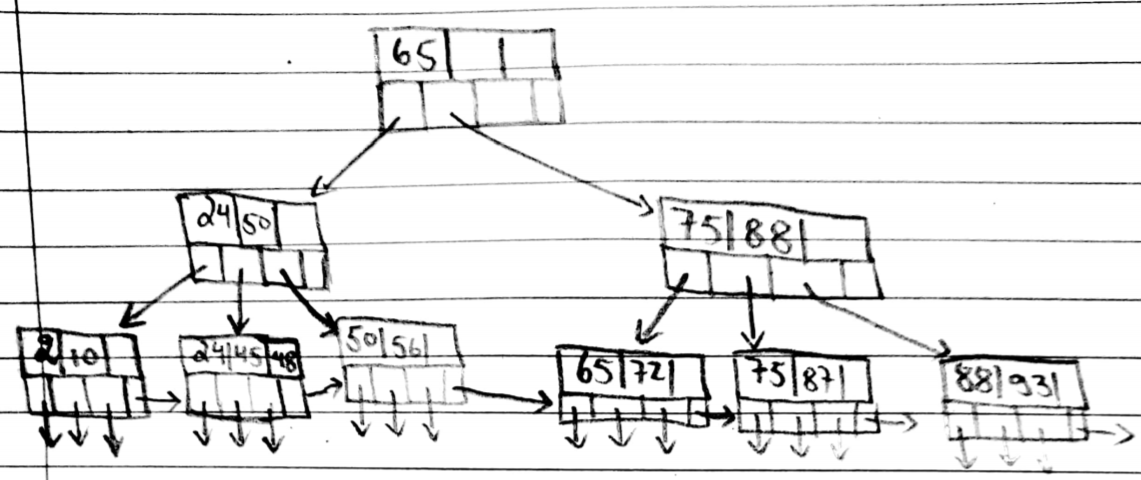 65
24 50
75 88
2 10
24 45 48
50 56
65 72
75 87
88 93